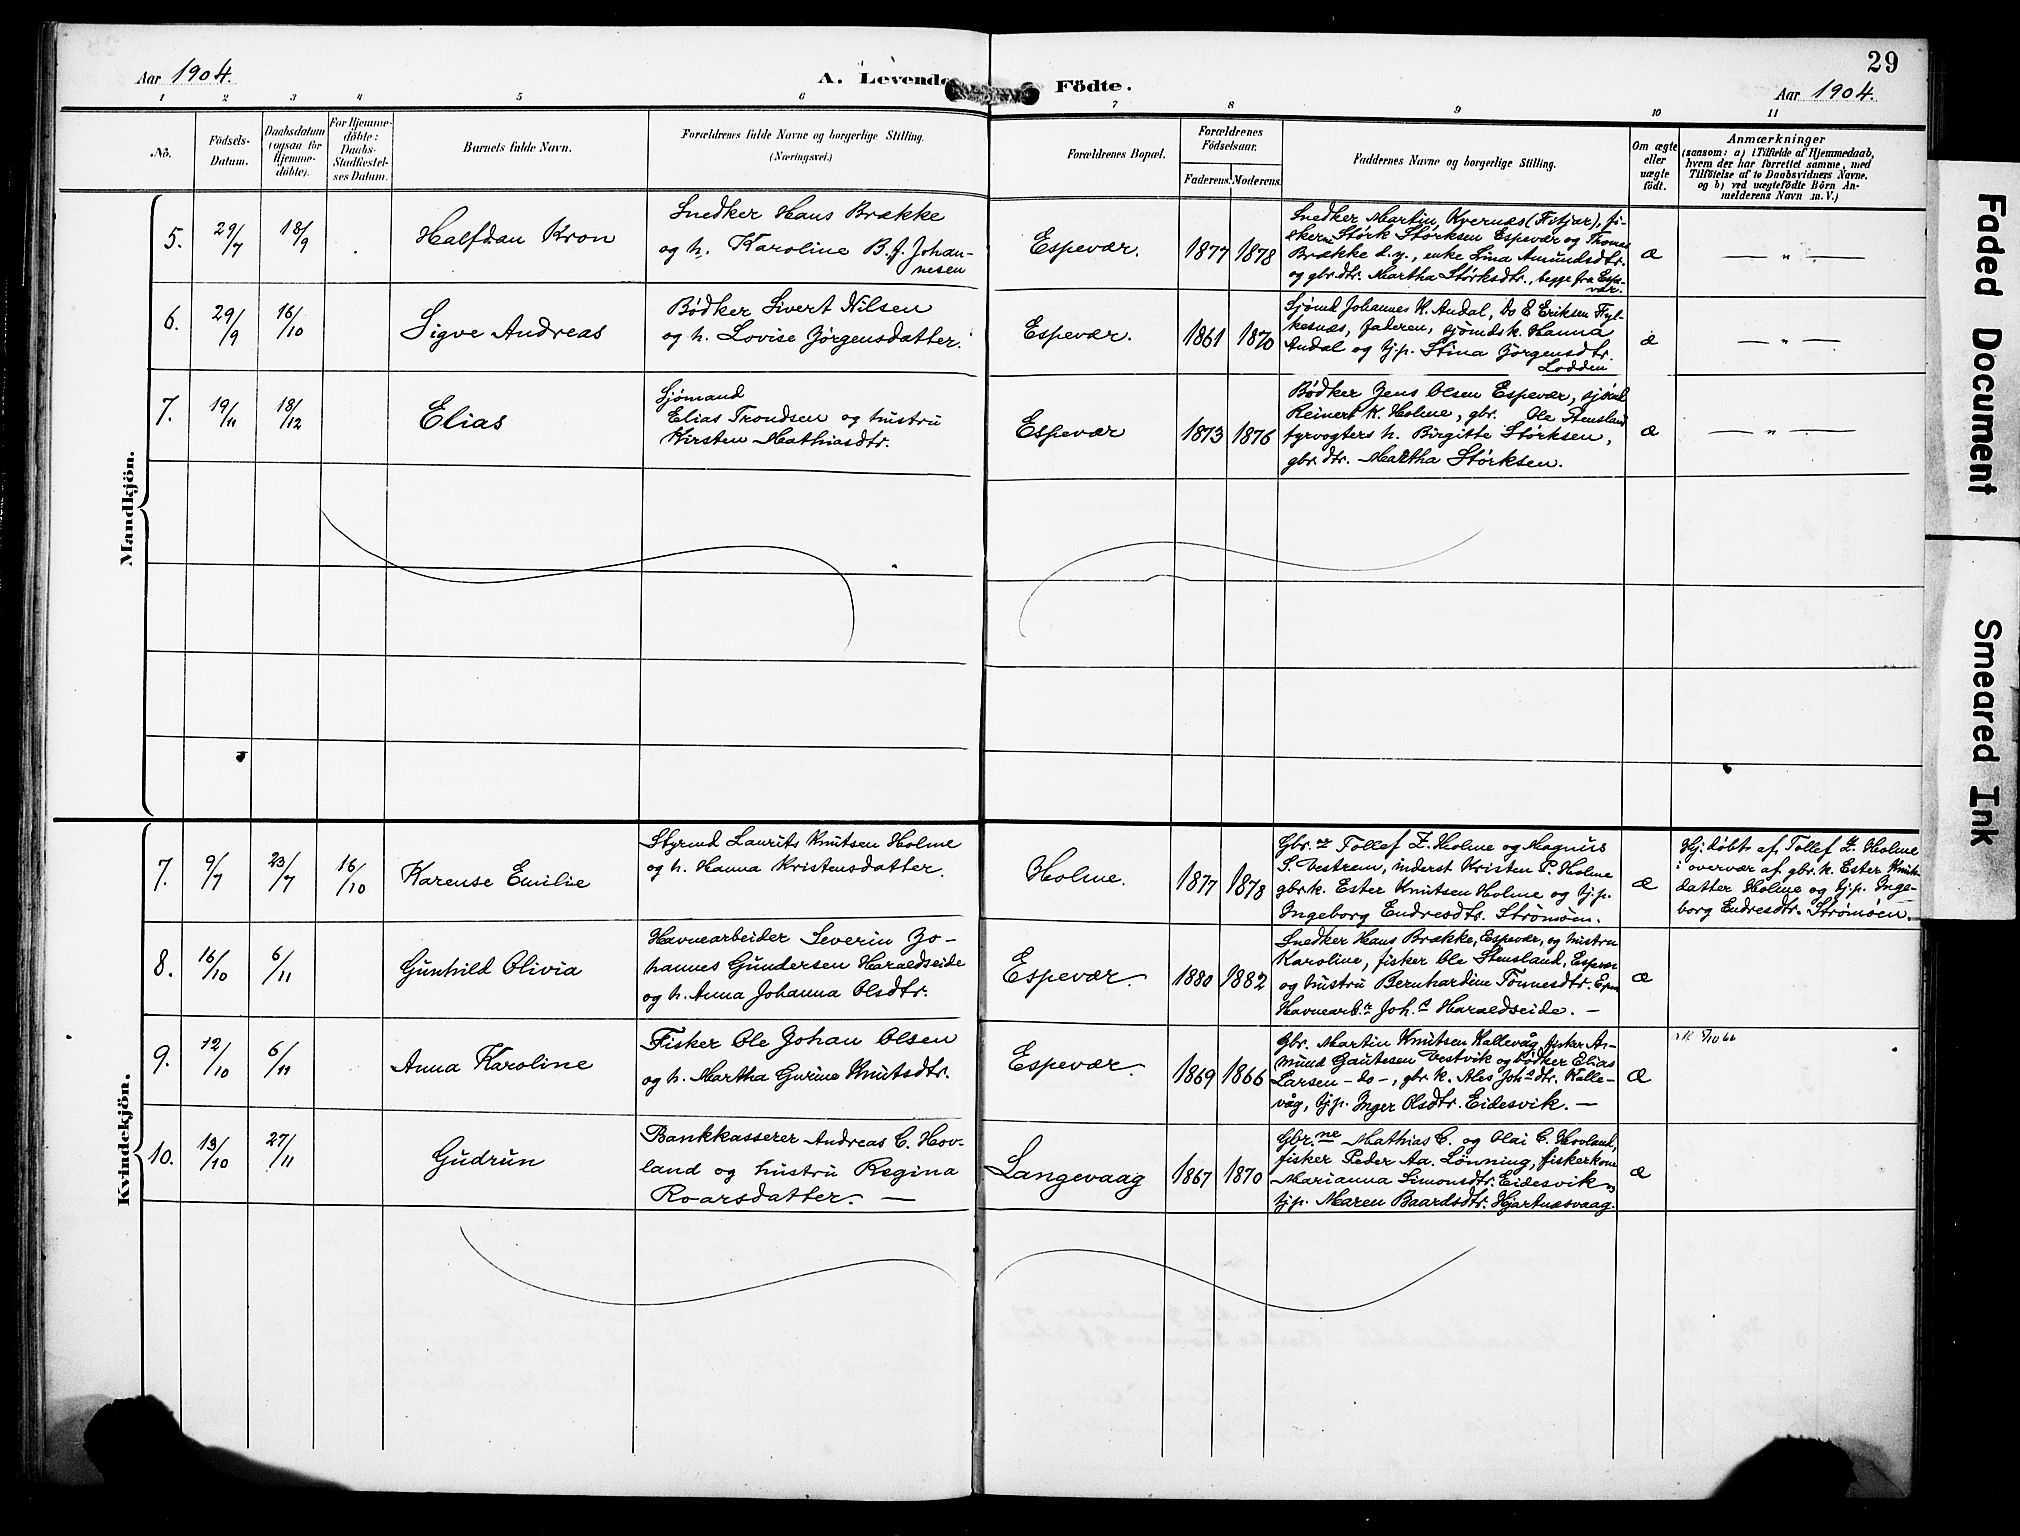 29
Aar 1904.
A. Levende Födte.
Aar 1904.
1 2 3 4 5 6 7 8 9 10 11
No.
Födsels-Datum.
Daabsdatum (ogsaa for Hjemme-döbte).
For Hjemme-döbte: Daabs-Stadfæstel-ses Datum.
Barnets fulde Navn.
Forældrenes fulde Navne og borgerlige Stilling. (Næringsvei.)
Forældrenes Bopæl.
Forældrenes Födselsaar.
Faderens. Moderens.
Faddernes Navne og borgerlige Stilling.
Om ægte eller uægte födt.
Anmærkninger
(saasom: a) i Tilfælde af Hjemmedaab,
hvem der har forrettet samme, med
Tilföielse af to Daabsvidners Navne.
og b) ved uægtefödte Börn An-
melderens Navn m. V.)
Mandkjön.
5. 29/7 18/9 Halfdan Kron
Snedker Hans Brække
og h. Karoline B. J. Johan-
nesen
Espevær. 1877 1878
Snedker Martin Kvernæs (Fitjar), fi-
skerne Størk Størksen Espevær og Thomas
Brække d. y., enke Lina Amundsdtr.
og gbr.dtr. Martha Størksdtr., begge fra Espe-
vær.
æ — " —
6. 29/9 16/10 Sigve Andreas
Bødker Sivert Nilsen
og h. Lovise Jørgensdatter.
Espevær. 1861 1870
Sjømd Johannes K. Audal, Do E Eriksen Fyl-
kesnæs, Faderen, sjømdsk. Hanna
Audal og tj.p. Stina Jørgensdtr.
Lodden
æ — " —
7. 19/11 18/12 Elias
Sjømand
Elias Trondsen og hustru
Kirsten Mathiasdtr.
Espevær 1873 1876
Bødker Jens Olsen Espevær, sjømd
Reinert K. Holme, gbr. Ole Stensland
fyrvogters h. Birgitte Størksen,
gbr. dtr. Martha Størksen.
æ — " —
Kvindekjön.
7. 9/7 23/7 16/10 Karense Emilie
Styrmd Laurits Knutsen Holme
og h. Hanna Kristensdatter.
Holme. 1877 1878
Gbr.ne Tollef Z. Holme og Magnus
S. Vestrem, inderst Kristen P. Holme
gbr.k. Ester Knutsen Holme og tj.p.
Ingeborg Endresdtr. Strömöen.
æ
Hj.døbt af Tollef Z. Holme
i overvær af gbr. k. Ester Knuts-
datter Holme og tj.p. Inge-
borg Endresdtr. Strømøen.
8. 16/10 6/11 Gunhild Olivia
Havnearbeider Severin Jo-
hannes Gundersen Haraldseide
og h. Anna Johanna Olsdtr.
Espevær. 1880 1882
Snedker Hans Brække, Espevær, og hustru
Karoline, fisker Ole Stensland, Espevær
og hustru Bernhardine Tönnesdtr.
Havnearb.r Joh.s Haraldseide. —
æ
9. 12/10 6/11 Anna Karoline
Fisker Ole Johan Olsen
og h. Martha Gurine Knutsdtr.
Espevær. 1869 1866
Gbr. Martin Knutsen Kallevåg, fisker A-
mund Gautesen Vestvik og bødker Elias
Larsen – do –, gbr. k. Ales Joh.sdtr. Kalle-
våg, tj.p. Inger Olsdtr. Eidesvik. —
æ
10. 13/10 27/11 Gudrun
Bankkasserer Andreas C. Hov-
land og hustru Regina
Roarsdatter. —
Langevaag 1867 1870
Gbr.ne Mathias C. og Olai C. Hovland,
fisker Peder Aa. Lønning, fiskerkone
Marianna Simonsdtr. Eidesvik
tj.p. Maren Baardsdtr. Hjartnæsvaag.
æ
Faded Document
Smeared Ink